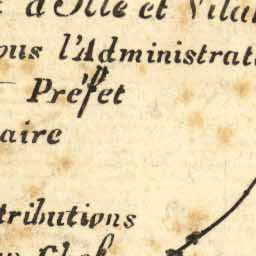 d'Ille et Vilai
ous l'Administrat
Préfet
aire
tributions
Chef